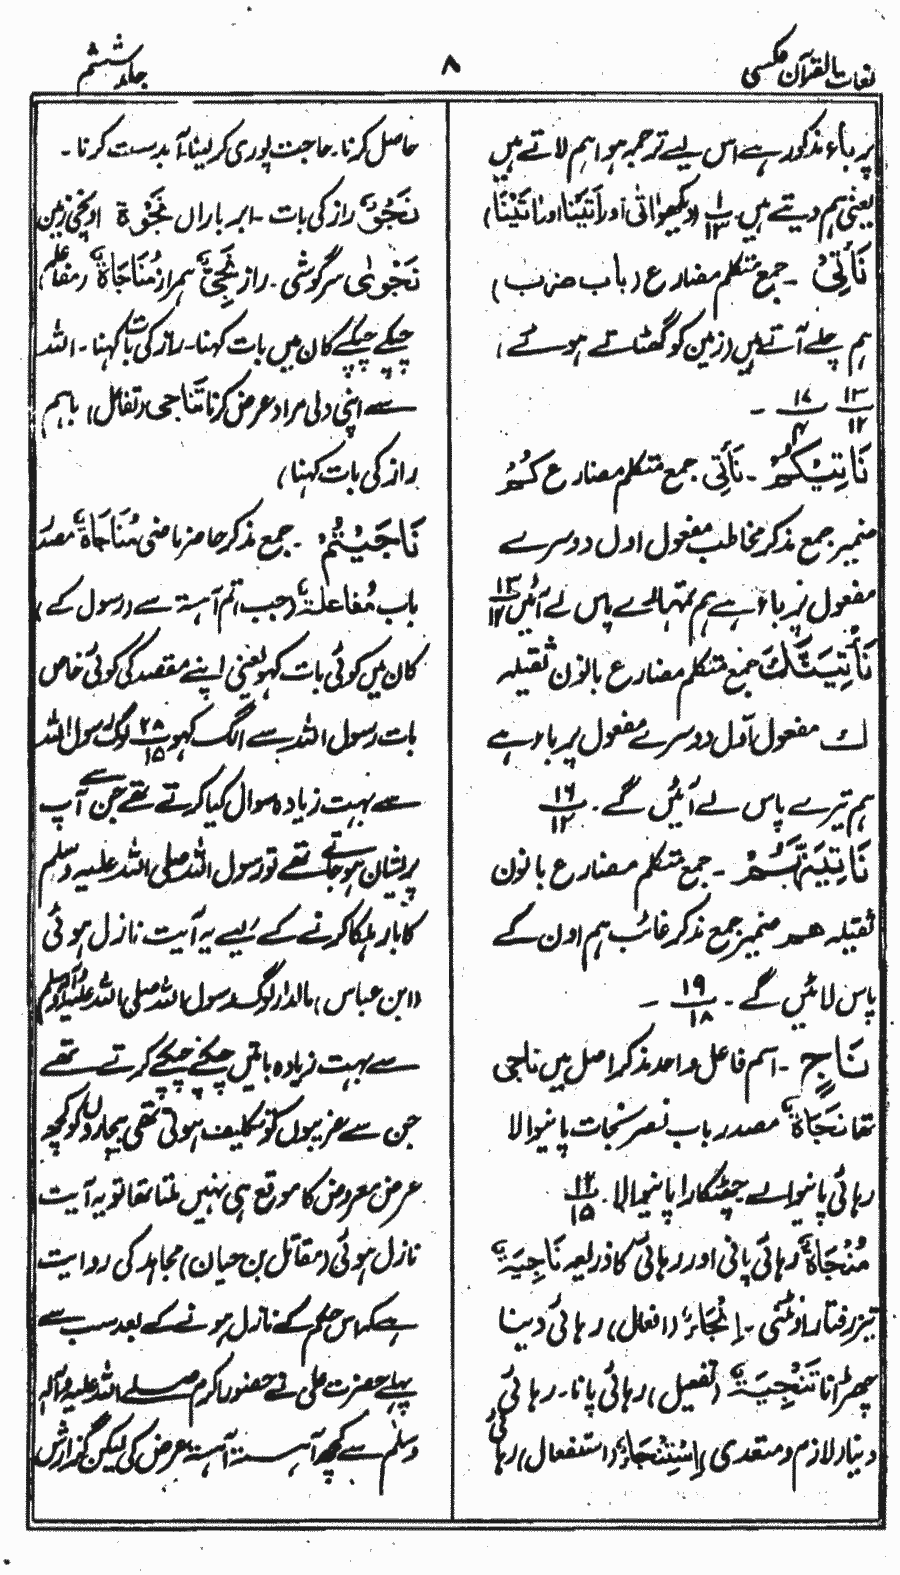 لغات القرآن عکسی
۸
جلد ششم
پر باء مذکور ہے اس لیے ترجمہ ہوا ہم لاتے ہیں
یعنی ہم دیتے ہیں۔ ۱/۱۳ (دیکھو اتٰی اور اَتَیْنَا اور اٰتَیْنَا)
نَأْتِیْ ۔ جمع متکلم مضارع (باب ضرب)
ہم چلے آتے ہیں (زمین کو گھٹاتے ہوئے)
۱۳/۱۲ ۱۷/۴ ۔
نَاْتِیْکُمْ ۔ نَأْتِی جمع متکلم مضارع کُمْ
ضمیر جمع مذکر مخاطب مفعول اول دوسرے
مفعول پر باء ہے ہم تمہارے پاس لے آئیں ۱۳/۱۴
نَأْتِیَنَّکَ جمع متکلم مضارع بانون ثقیلہ
ک مفعول اوّل دوسرے مفعول پر باء ہے
ہم تیرے پاس لے آئیں گے ۔ ۱۶/۱۲
نَاْتِیَنَّہُمْ ۔ جمع متکلم مضارع بانون
ثقیلہ ھم ضمیر جمع مذکر غائب ہم اون کے
پاس لائیں گے ۔ ۱۹/۱۸ ۔
نَاجٍ ۔ اسم فاعل واحد مذکر اصل میں ناجی
تھا نَجَاۃٌ مصدر باب نصر نجات پانیوالا
رہائی پانیوالے چھٹکارا پانیوالا ۔ ۱۲/۱۵
مُنْجَاۃٌ رہائی پانی اور رہائی کا ذریعہ نَاجِیَۃٌ
تیز رفتار اونٹنی ۔ اِنْجَاءٌ (افعال) رہائی دینا
چھڑانا تَنْجِیَۃٌ (تفعیل) رہائی پانا۔ رہائی
دینا، لازم و متعدی اِسْتِنْجَاءٌ (استفعال) رہائی
حاصل کرنا ۔ حاجت پوری کرلینا۔ آبدست کرنا ۔
نَجْوٌ راز کی بات ۔ ابر باراں نَجْوَۃ اونچی زمین
نَجْوٰی سرگوشی ۔ راز نَجِیٌّ ہمراز مُنَاجَاۃٌ (مفاعلۃ)
چپکے چپکے کان میں بات کہنا ۔ راز کی بات کہنا ۔ اللہ
سے اپنی دلی مراد عرض کرنا تَنَاجی (تفاعل) باہم
راز کی بات کہنا)
نَاجَیْتُمْ ۔ جمع مذکر حاضر ماضی مُنَاجَاۃٌ مصدر
باب مُفاعلۃٌ (جب تم آہستہ سے (رسول کے)
کان میں کوئی بات کہو یعنی اپنے مقصد کی کوئی خاص
بات رسول اللہ سے الگ کہو ۲۸/۱۵ لوگ رسول اللہ
سے بہت زیادہ سوال کیا کرتے تھے جن سے آپ
پریشان ہو جاتے تھے تو رسول اللہ صلی اللہ علیہ وسلم
کا بار ہلکا کرنے کے لیے یہ آیت نازل ہوئی
(ابن عباس) مالدار لوگ رسول اللہ صلی اللہ علیہ وآلہ وسلم
سے بہت زیادہ باتیں چپکے چپکے کرتے تھے
جن سے غریبوں کو تکلیف ہوتی تھی بیچاروں کو کچھ
عرض معروض کا موقع ہی نہیں ملتا تھا تو یہ آیت
نازل ہوئی (مقاتل بن حیان) مجاہد کی روایت
ہے کہ اس حکم کے نازل ہونے کے بعد سب سے
پہلے حضرت علی نے حضور اکرم صلے اللہ علیہ وآلہ
وسلم سے کچھ آہستہ آہستہ عرض کی لیکن گذارش